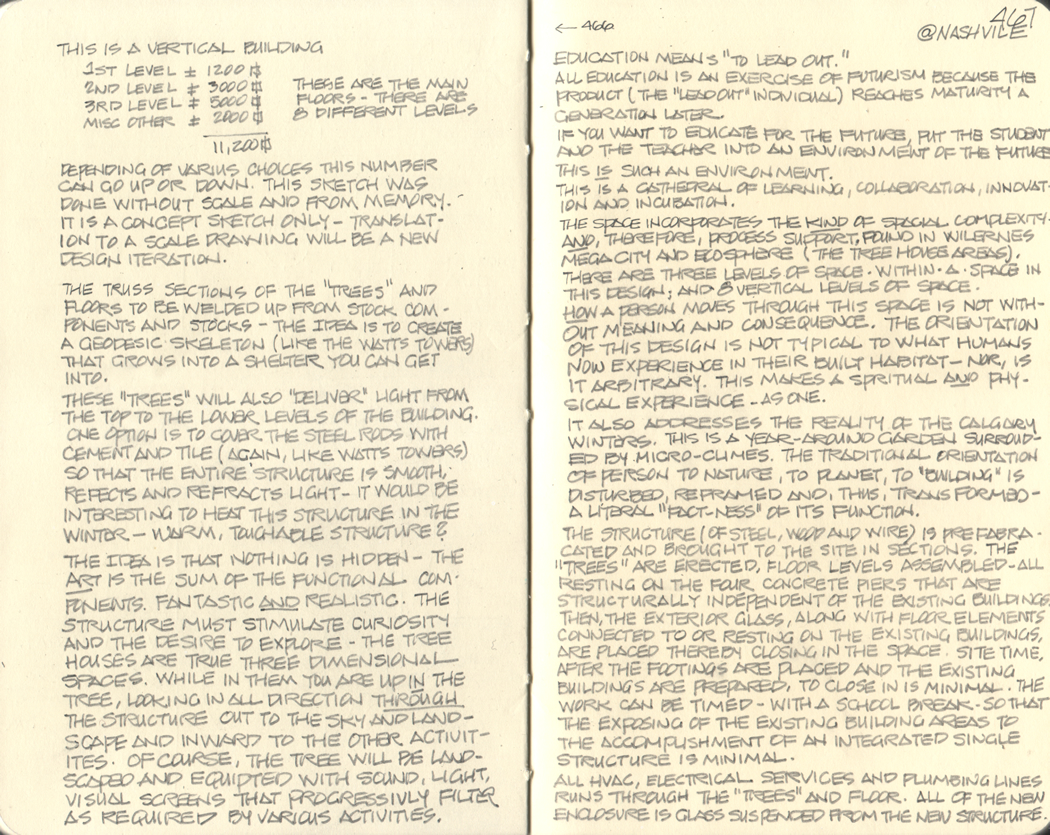 THIS IS A VERTICAL BUILDING
1ST LEVEL ± 1200 ⏍
2ND LEVEL ± 3000
3RD LEVEL ± 5000
MISC OTHER ± 2000
11,200
THESE ARE THE MAIN
FLOORS - THERE ARE
8 DIFFERENT LEVELS
DEPENDING OF VARIUS CHOICES THIS NUMBER
CAN GO UP OR DOWN. THIS SKETCH WAS
DONE WITHOUT SCALE AND FROM MEMORY. -
IT IS A CONCEPT SKETCH ONLY - TRANSLAT-
ION TO A SCALE DRAWING WILL BE A NEW
DESIGN ITERATION.
THE TRUSS SECTIONS OF THE "TREES" AND
FLOORS TO BE WELDED UP FROM STOCK COM-
PONENTS AND STOCKS - THE IDEA IS TO CREATE
A GEODESIC SKELETON (LIKE THE WATTS TOWERS)
THAT GROWS INTO A SHELTER YOU CAN GET
INTO.
THESE "TREES" WILL ALSO "DELIVER" LIGHT FROM
THE TOP TO THE LOWER LEVELS OF THE BUILDING.
ONE OPTION IS TO COVER THE STEEL RODS WITH
CEMENT AND TILE (AGAIN, LIKE WATTS TOWERS)
SO THAT THE ENTIRE STRUCTURE IS SMOOTH,
REFECTS AND REFRACTS LIGHT - IT WOULD BE
INTERESTING TO HEAT THIS STRUCTURE IN THE
WINTER - WARM, TOUCHABLE STRUCTURE?
THE IDEA IS THAT NOTHING IS HIDDEN - THE
ART IS THE SUM OF THE FUNCTIONAL COM-
PONENTS. FANTASTIC AND REALISTIC. THE
STRUCTURE MUST STIMULATE CURIOSITY
AND THE DESIRE TO EXPLORE - THE TREE
HOUSES ARE TRUE THREE DIMENSIONAL
SPACES. WHILE IN THEM YOU ARE UP IN THE
TREE, LOOKING IN ALL DIRECTION THROUGH
THE STRUCTURE OUT TO THE SKY AND LAND-
SCAPE AND INWARD TO THE OTHER ACTIVIT-
ITES. OF COURSE, THE TREE WILL BE LAND-
SCAPED AND EQUIPTED WITH SOUND, LIGHT,
VISUAL SCREENS THAT PROGRESSIVLY FILTER
AS REQUIRED BY VARIOUS ACTIVITIES.
← 466
467
@NASHVILE
EDUCATION MEANS "TO LEAD OUT."
ALL EDUCATION IS AN EXERCISE OF FUTURISM BECAUSE THE
PRODUCT (THE "LEAD OUT" INDIVIDUAL) REACHES MATURITY A
GENERATION LATER.
IF YOU WANT TO EDUCATE FOR THE FUTURE, PUT THE STUDENT
AND THE TEACHER INTO AN ENVIRONMENT OF THE FUTURE
THIS IS SUCH AN ENVIRONMENT.
THIS IS A CATHEDRAL OF LEARNING, COLLABORATION, INNOVAT-
ION AND INCUBATION.
THE SPACE INCORPORATES THE KIND OF SPACIAL COMPLEXITY.
AND, THEREFORE, PROCESS SUPPORT, FOUND IN WILERNES
MEGA CITY AND ECOSPHERE (THE TREE HOUSE AREAS).
THERE ARE THREE LEVELS OF SPACE - WITHIN - A - SPACE IN
THIS DESIGN; AND 8 VERTICAL LEVELS OF SPACE.
HOW A PERSON MOVES THROUGH THIS SPACE IS NOT WITH-
OUT MEANING AND CONSEQUENCE. THE ORIENTATION
OF THIS DESIGN IS NOT TYPICAL TO WHAT HUMANS
NOW EXPERIENCE IN THEIR BUILT HABITAT - NOR, IS
IT ARBITRARY. THIS MAKES A SPRITUAL AND PHY-
SICAL EXPERIENCE - AS ONE.
IT ALSO ADDRESSES THE REALITY OF THE CALGARY
WINTERS. THIS IS A YEAR-AROUND GARDEN SURROUD-
ED BY MICRO-CLIMES. THE TRADITIONAL ORIENTATION
OF PERSON TO NATURE, TO PLANET, TO "BUILDING" IS
DISTURBED, REFRAMED AND, THUS, TRANSFORMED -
A LITERAL "FACT-NESS" OF ITS FUNCTION.
THE STRUCTURE (OF STEEL, WOOD AND WIRE) IS PREFABRA-
CATED AND BROUGHT TO THE SITE IN SECTIONS. THE
"TREES" ARE ERECTED, FLOOR LEVELS ASSEMBLED - ALL
RESTING ON THE FOUR CONCRETE PIERS THAT ARE
STRUCTURALLY INDEPENDENT OF THE EXISTING BUILDINGS.
THEN, THE EXTERIOR GLASS, ALONG WITH FLOOR ELEMENTS
CONNECTED TO OR RESTING ON THE EXISTING BUILDINGS,
ARE PLACED THEREBY CLOSING IN THE SPACE. SITE TIME,
AFTER THE FOOTINGS ARE PLACED AND THE EXISTING
BUILDINGS ARE PREPARED, TO CLOSE IN IS MINIMAL. THE
WORK CAN BE TIMED - WITH A SCHOOL BREAK - SO THAT
THE EXPOSING OF THE EXISTING BUILDING AREAS TO
THE ACCOMPLISHMENT OF AN INTEGRATED SINGLE
STRUCTURE IS MINIMAL.
ALL HVAC, ELECTRICAL SERVICES AND PLUMBING LINES
RUNS THROUGH THE "TREES" AND FLOOR. ALL OF THE NEW
ENCLOSURE IS GLASS SUSPENDED FROM THE NEW STRUCTURE.